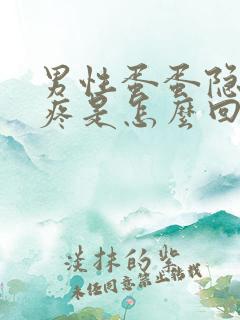 男性蛋蛋隐
疼是怎麼回
淡抹的紫
未经同意禁止转载